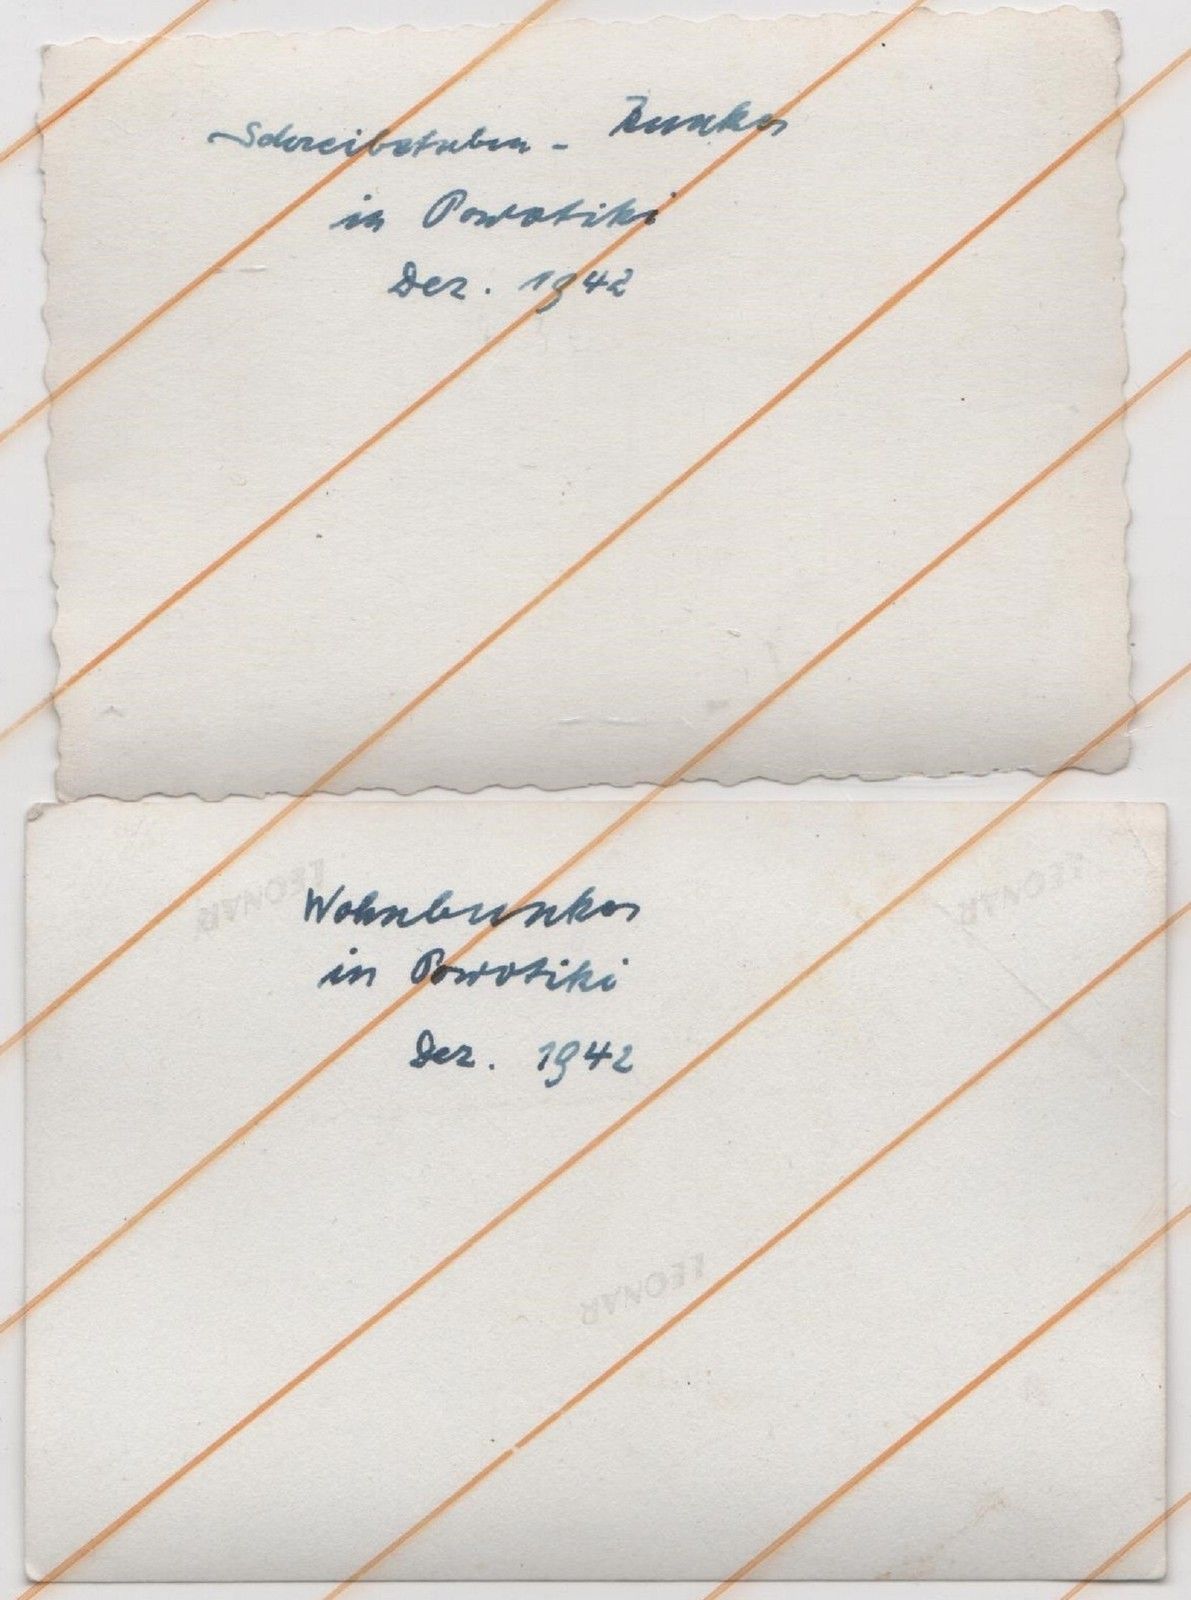 Schreibstuben- Bunker
in Powotiki
Dez. 1942
LEONAR
LEONAR
Wohnbunker
in Powotiki
Dez. 1942
LEONAR